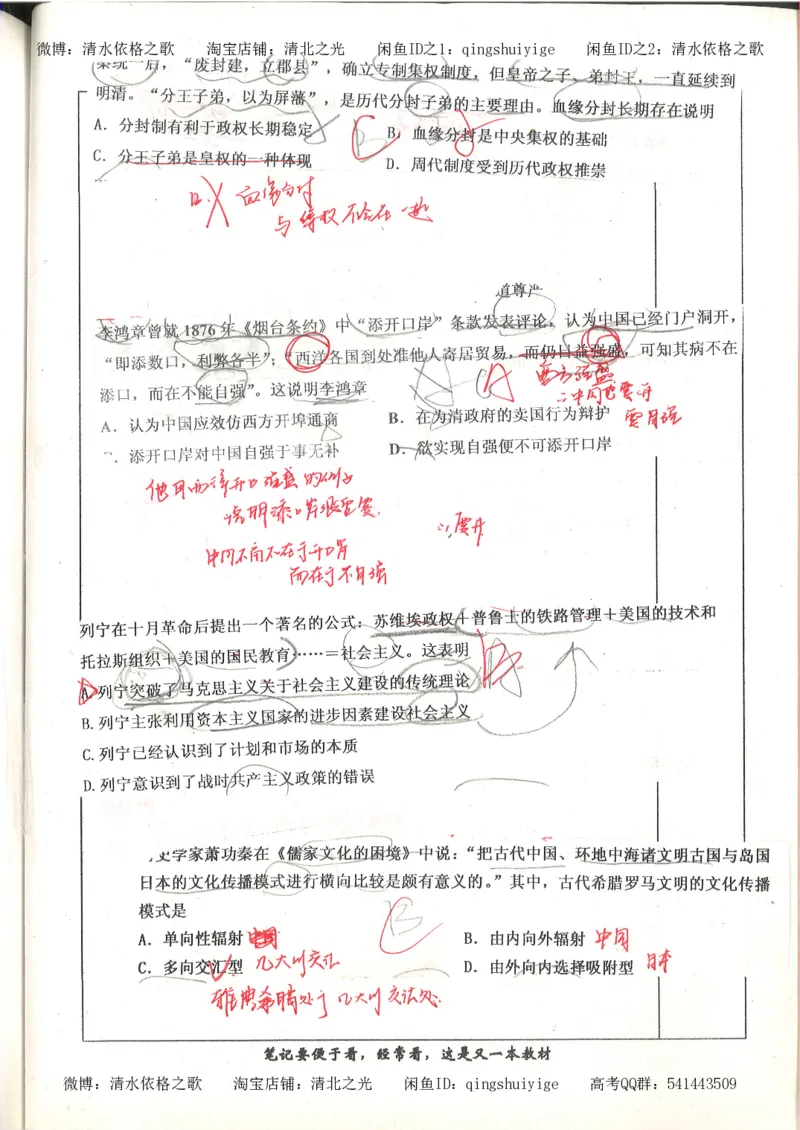 微博：清水依格之歌 淘宝店铺：清北之光 闲鱼ID之1：qingshuiyige 闲鱼ID之2：清水依格之歌
秦统一后，“废封建，立郡县”，确立专制集权制度，但皇帝之子、弟封王，一直延续到
明清。“分王子弟，以为屏藩”，是历代分封子弟的主要理由。血缘分封长期存在说明
A．分封制有利于政权长期稳定 C B B．血缘分封是中央集权的基础
C．分王子弟是皇权的一种体现 D．周代制度受到历代政权推崇
血缘分封
与集权不会在一起
道尊严
李鸿章曾就 1876 年《烟台条约》中“添开口岸”条款发表评论，认为中国已经门户洞开，
“即添数口，利弊各半”；“西洋各国到处准他人寄居贸易，而仍日益强盛，可知其病不在
添口，而在不能自强”。这说明李鸿章 A
西方强盛
∴中国也要开
要自强
A．认为中国应效仿西方开埠通商 B．在为清政府的卖国行为辩护
．添开口岸对中国自强于事无补 D．欲实现自强便不可添开口岸
他用西洋开口强盛的例子
说明添口岸很重要
∴要开
中国不亩不在于开口岸
而在于不自强
列宁在十月革命后提出一个著名的公式：苏维埃政权＋普鲁士的铁路管理＋美国的技术和
托拉斯组织＋美国的国民教育……＝社会主义。这表明 B
A.列宁突破了马克思主义关于社会主义建设的传统理论
B.列宁主张利用资本主义国家的进步因素建设社会主义
C.列宁已经认识到了计划和市场的本质
D.列宁意识到了战时共产主义政策的错误
史学家萧功秦在《儒家文化的困境》中说：“把古代中国、环地中海诸文明古国与岛国
日本的文化传播模式进行横向比较是颇有意义的。”其中，古代希腊罗马文明的文化传播
模式是 C B
A．单向性辐射 B．由内向外辐射 中国
C．多向交汇型 几大洲交汇 D．由外向内选择吸附型 日本
雅典希腊处于几大洲交汇处
笔记要便于看，经常看，这是又一本教材
微博：清水依格之歌 淘宝店铺：清北之光 闲鱼ID：qingshuiyige 高考QQ群：541443509